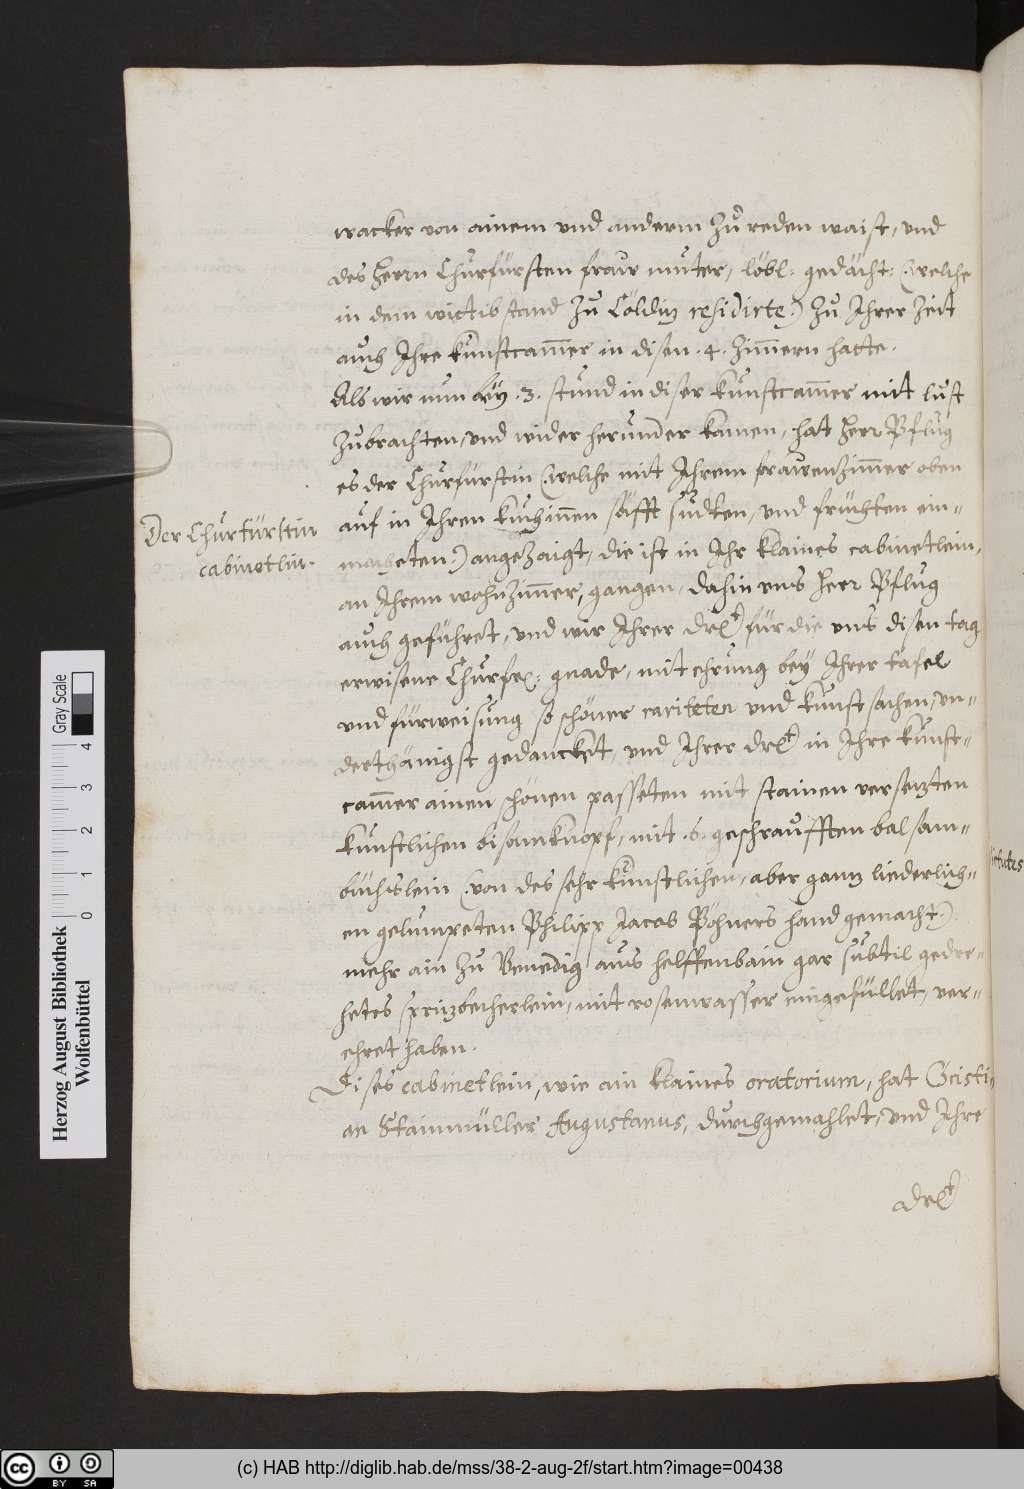 wacker von ainem vnd anderm zů reden waist, vnd
des Herrn Churfürsten fraw muter, löbl: gedächt: (welche
in dem wittibstand zu Cöldiz residirte.) zů Ihrer Zeit
auch Ihre kunstcam̃er in disen .4. Zim̃ern hatte.
Als wir nun bey .3. stund in diser kunstcam̃er mit lust
zubrachten, vnd wider herunder kamen, hat Herr Pflug
es der Churfürstin (welche mit Ihrem frawenzim̃er oben
auf in Ihren kuchinnen säfft sudten, vnd früchten ein=
macheten.) angezaigt, die ist in Ihr klaines cabinetlein,
an Ihrem wohnzim̃er, gangen, dahin vns Herr Pflug
auch geführet, vnd wir Ihrer drlt für die vns disen tag
erwisene Churfr: gnade, mit ehrung bey Ihrer tafel
vnd fürweisung so schöner rariteten vnd kunstsachen, vn=
derthänigst gedancket, vnd Ihrer drlt in Ihre kunst=
cam̃er ainen schönen passeten mit stainen versezten
kunstlichen bisamknopf, mit .6. geschraufften balsam=
büchslein (von des sehr kunstlichen, aber ganz liederlich=
en gelumpeten Philipp Jacob Pöhners hand gemacht.)
mehr ain zu Venedig aus helffenbain gar subtil gedre=
hetes sprizbecherlein, mit rosenwasser eingefüllet, ver=
ehret haben.
Dises cabinetlein, wie ain klaines oratorium, hat Cristi=
an Stainmüller Augustanus, durchgemahlet, vnd Ihre
drlt
Der Churfürstin
cabinetlin.
Herzog August Bibliothek
Wolfenbüttel
0 1 2 3 4
Gray Scale
cc BY SA
(c) HAB http://diglib.hab.de/mss/38-2-aug-2f/start.htm?image=00438